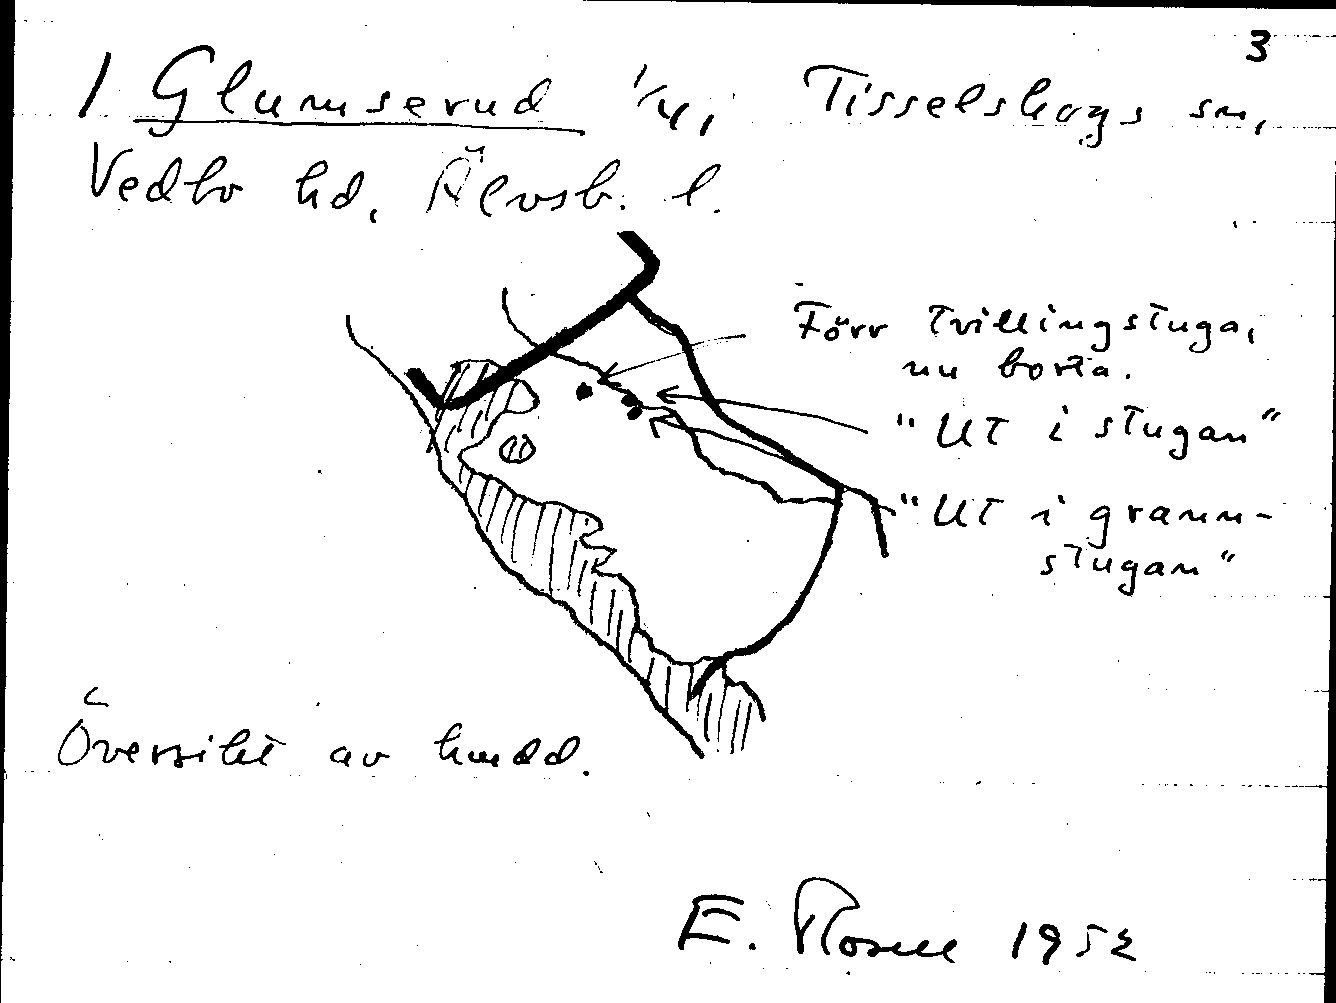 3
1 Glumserud 1/4, Tisselskogs sn,
Vedbo hd, Älvsb. l.
Förr tvillingstuga,
nu borta.
"Ut i stugan"
"Ut i grann-
stugan"
Översikt av
E. 1952